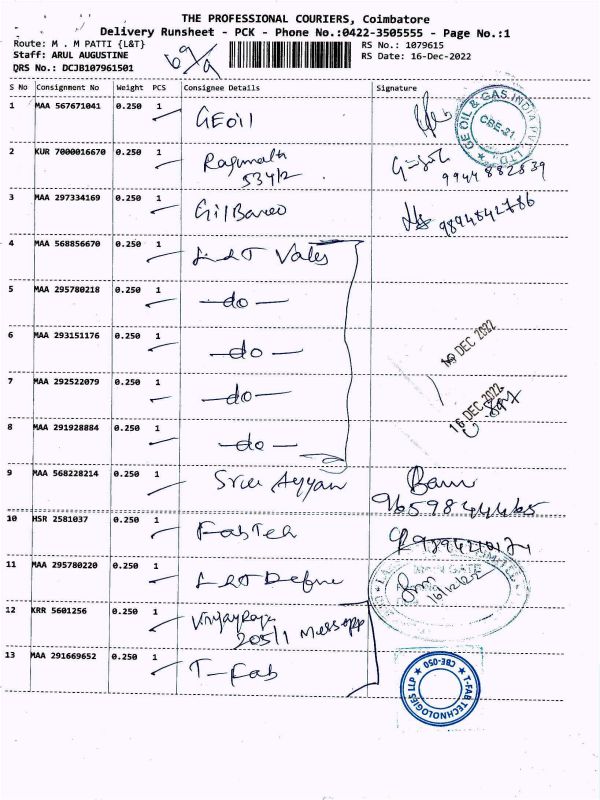 THE PROFESSIONAL COURIERS, Coimbatore
Delivery Runsheet - PCK - Phone No.:0422-3505555 - Page No.:1
Route: M . M PATTI {L&T}
RS No.: 1079615
Staff: ARUL AUGUSTINE
RS Date: 16-Dec-2022
QRS No.: DCJB107961501
S No Consignment No Weight PCS Consignee Details Signature
1 MAA 567671041 0.250 1 GEOil
GE OIL & GAS INDIA PVT. LTD. CBE-21
2 KUR 7000016670 0.250 1 Ragunath
534/2
9944882839
3 MAA 297334169 0.250 1 GilBarco
9894842786
4 MAA 568856670 0.250 1 L&T Valves
5 MAA 295780218 0.250 1 -do-
6 MAA 293151176 0.250 1 -do-
DEC 2022
7 MAA 292522079 0.250 1 -do-
16 DEC 2022
8 MAA 291928884 0.250 1 -do-
9 MAA 568228214 0.250 1 Sree Ayyan
9659844465
10 HSR 2581037 0.250 1 FabTech
11 MAA 295780220 0.250 1 L&T Defence
16/12/22
12 KRR 5601256 0.250 1 Vinjayraja
205/1
13 MAA 291669652 0.250 1 T-Fab
T-FAB TECHNOLOGIES LLP CBE-050